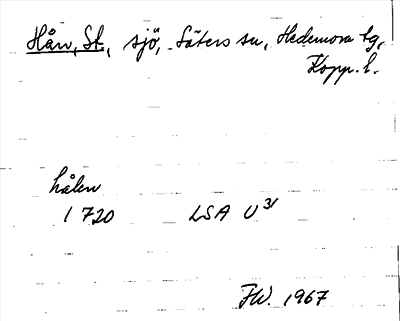 Hån, St., sjö, Säters sn, Hedemora tg,
Kopp. l.
hålen
1720 LSA U 31
FW. 1967